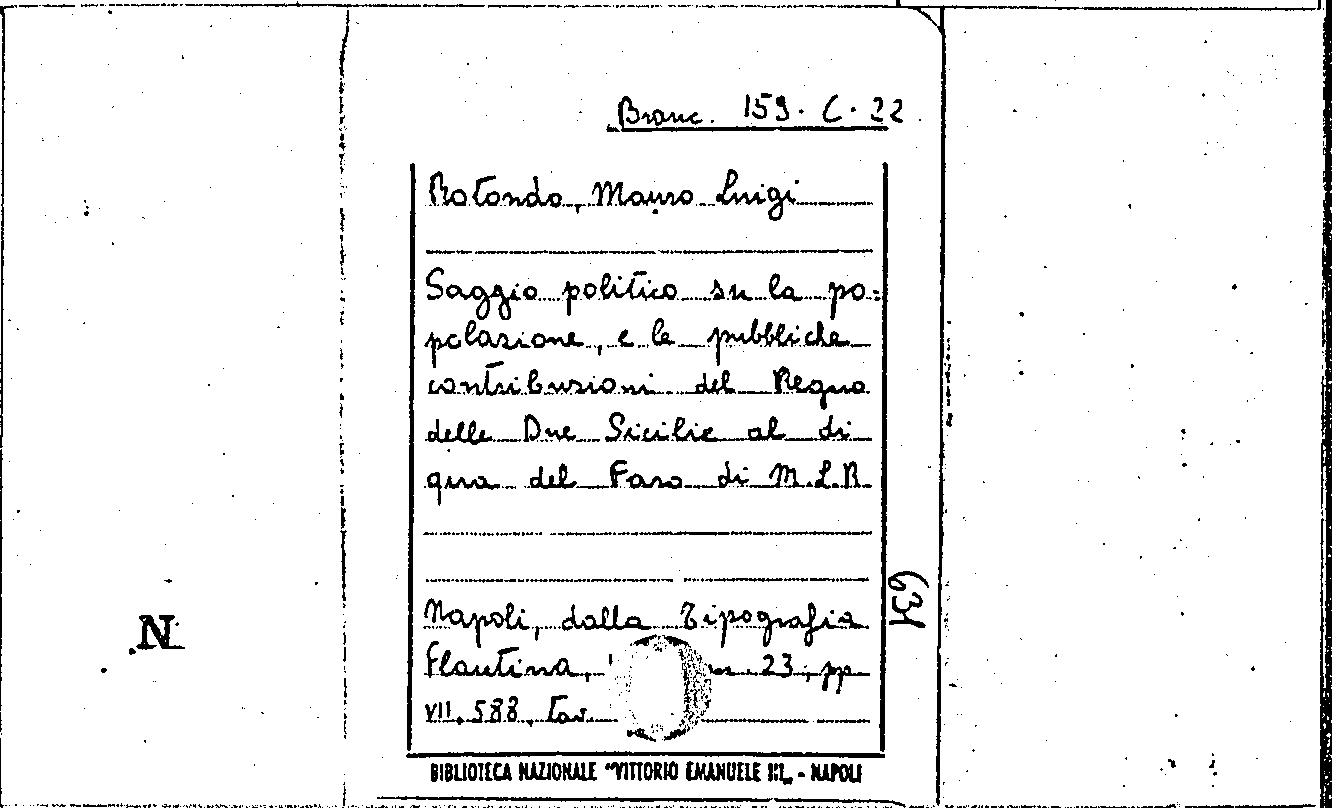 Branc. 159. C. 22
Rotondo, Mauro Luigi
Saggio politico su la po=
polazione, e le pubbliche
contribuzioni del Regno
delle Due Sicilie al di
qua del Faro di M.L.R.
Napoli, dalla Tipografia
Flautina, cm. 23, pp
VII. 588, tav.
631
N
BIBLIOTECA NAZIONALE "VITTORIO EMANUELE III" - NAPOLI